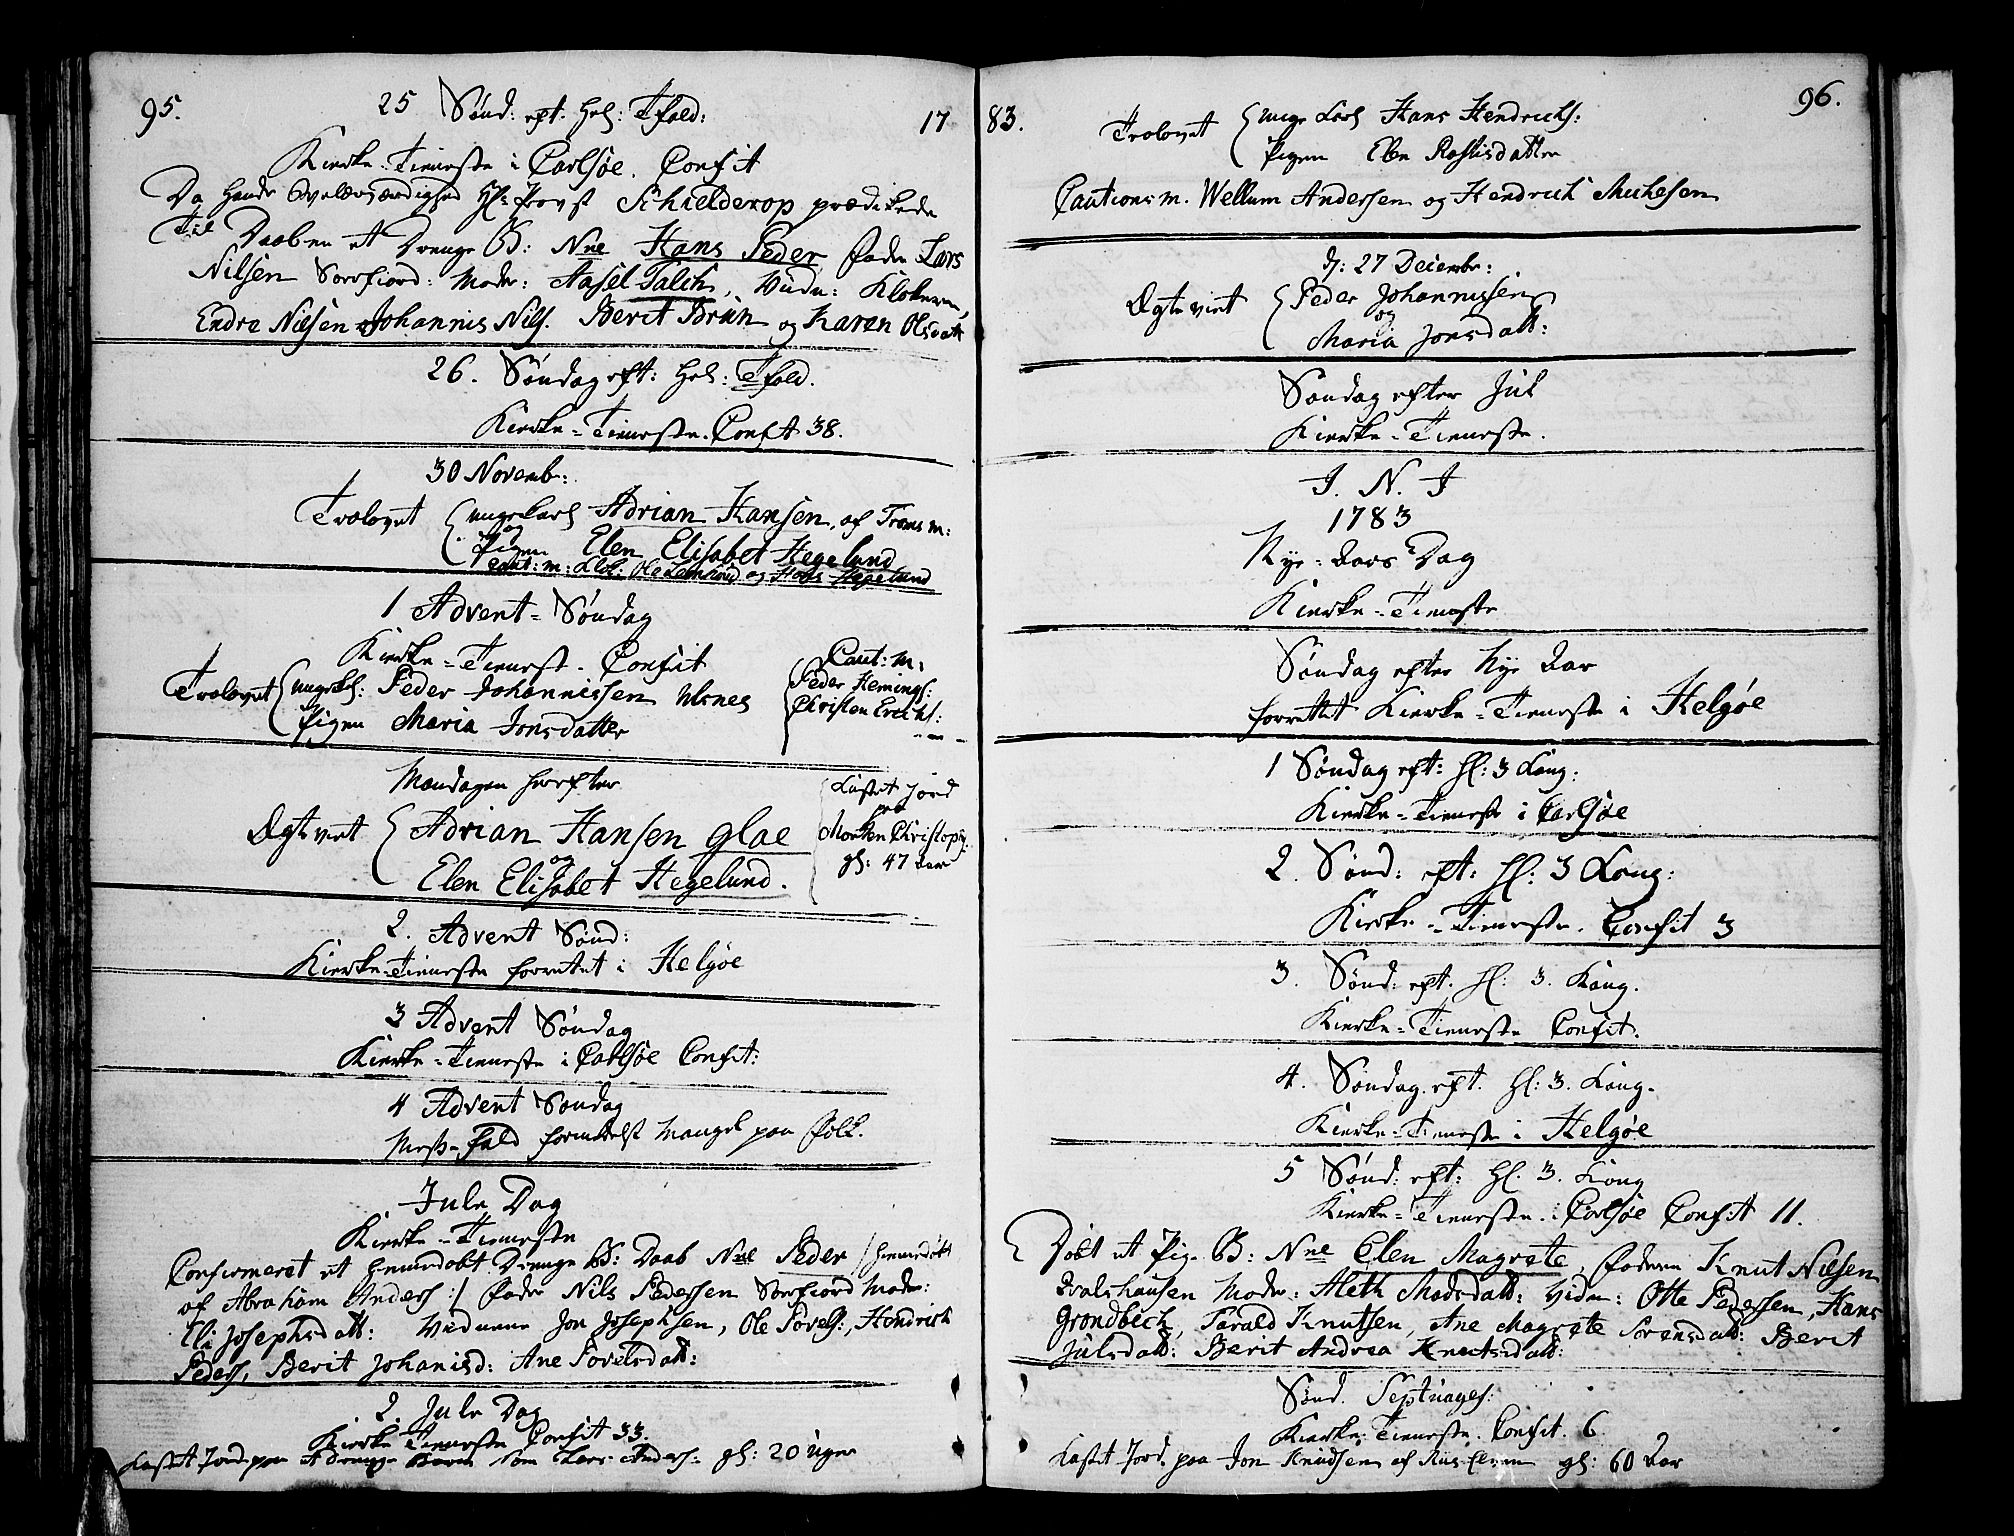 95.
25 Sønd: eft. hel: Trfold:
17
Kierke-Tieneste i Carlsøe. Confit
Da Hands Velærværdighed Hr Provst Schielderop prædikede
Til Daaben et Drenge B: Nne Hans Peder, fader Lars
Nilsen Sorfiord: Moder: Aasel Falch, Vidn: Klokeren,
Endre Nilsen Johannis Nils. Berit Brun og Karen Olsdatt
26. Søndag eft: Hel: Trfold.
Kierke-Tieneste. Confit 38.
30 Novemb:
Trolovet unge Karl Adrian Hansen, af Troms m:
og
Pigen Elen Elisabet Hegelund
Caut: m: Klok: Ole og Hans Hegelund
1 Advent-Søndag
Kierke-Tienest. Confit
Trolovet unge Kl: Peder Johannissen Ulsnes
Pigen Maria Jonsdatter
Caut: m:
Peder Hemings:
Christen Erichs:
Mandagen herefter
Ægteviet Adrian Hansen Glae
og
Elen Elisabet Hegelund.
Kastet Jord
paa
Morten Christoph:
gl: 47 Aar
2. Advent Sønd:
Kierke-Tieneste forrettet i Helgøe
3 Advent Søndag
Kierke-Tieneste i Carlsøe Confit:
4 Advent Søndag
Mess-fald formedelst Mangel paa Folk.
Jule Dag
Kierke-Tieneste
Confirmeret et hiemedøbt Drenge B: Daab Nne Peder /: hiemedøbt
af Abraham Anders :/ Fader Nils Pedersen Sorfiord Moder:
Eli Josephsdatt: Vidnene Jon Josephsen, Ole Povels:, Hendrich
Peders, Berit Johanisd: Ane Povelsdatt:
2. Jule Dag
Kierke Tieneste Confit 33.
Kastet Jord paa et Drenge Barn Nom Lars Anders: gl: 20 Uger
83.
96.
Trolovet unge Karl Hans Hendrichs:
Pigen Elen Rastisdatter
Cautions m. Wellum Andersen og Hendrich Michesen
d: 27 Decembr:
Ægteviet Peder Johannissen
og
Maria Jonsdatt:
Søndag efter Jul
Kierke-Tieneste.
I. N. J
1783
Nye-Aars Dag
Kierke-Tieneste
Søndag efter Nye Aar
forrettet Kierke-Tieneste i Helgøe
1 Søndag eft: Hl: 3 Kong:
Kierke-Tieneste i Carlsøe
2. Sønd: eft: Hl: 3 Kong:
Kierke-Tieneste. Confit 3
3. Sønd: eft. Hl: 3. Kong.
Kierke-Tieneste Confit.
4. Søndag. eft. Hl: 3. Kong.
Kierke-Tieneste i Helgøe
5 Sønd: eft: Hl. 3. Kong
Kierke-Tieneste i Carlsøe Confit 11.
Døbt et Pige B: Nne Elen Magrete, faderen Knut Nilsen
Moder: Aleth Madsdatt: Vidn: Otte Pedersen, Hans
Grondbech, Farald Knutsen, Ane Magrete Sorensdatt: Berit
Julsdatt: Berit Andrea Knutsdatt:
Sønd. Septuages:
Kierke-Tieneste. Confit. 6
Kastet Jord paa Jon Knudsen af gl: 60 Aar